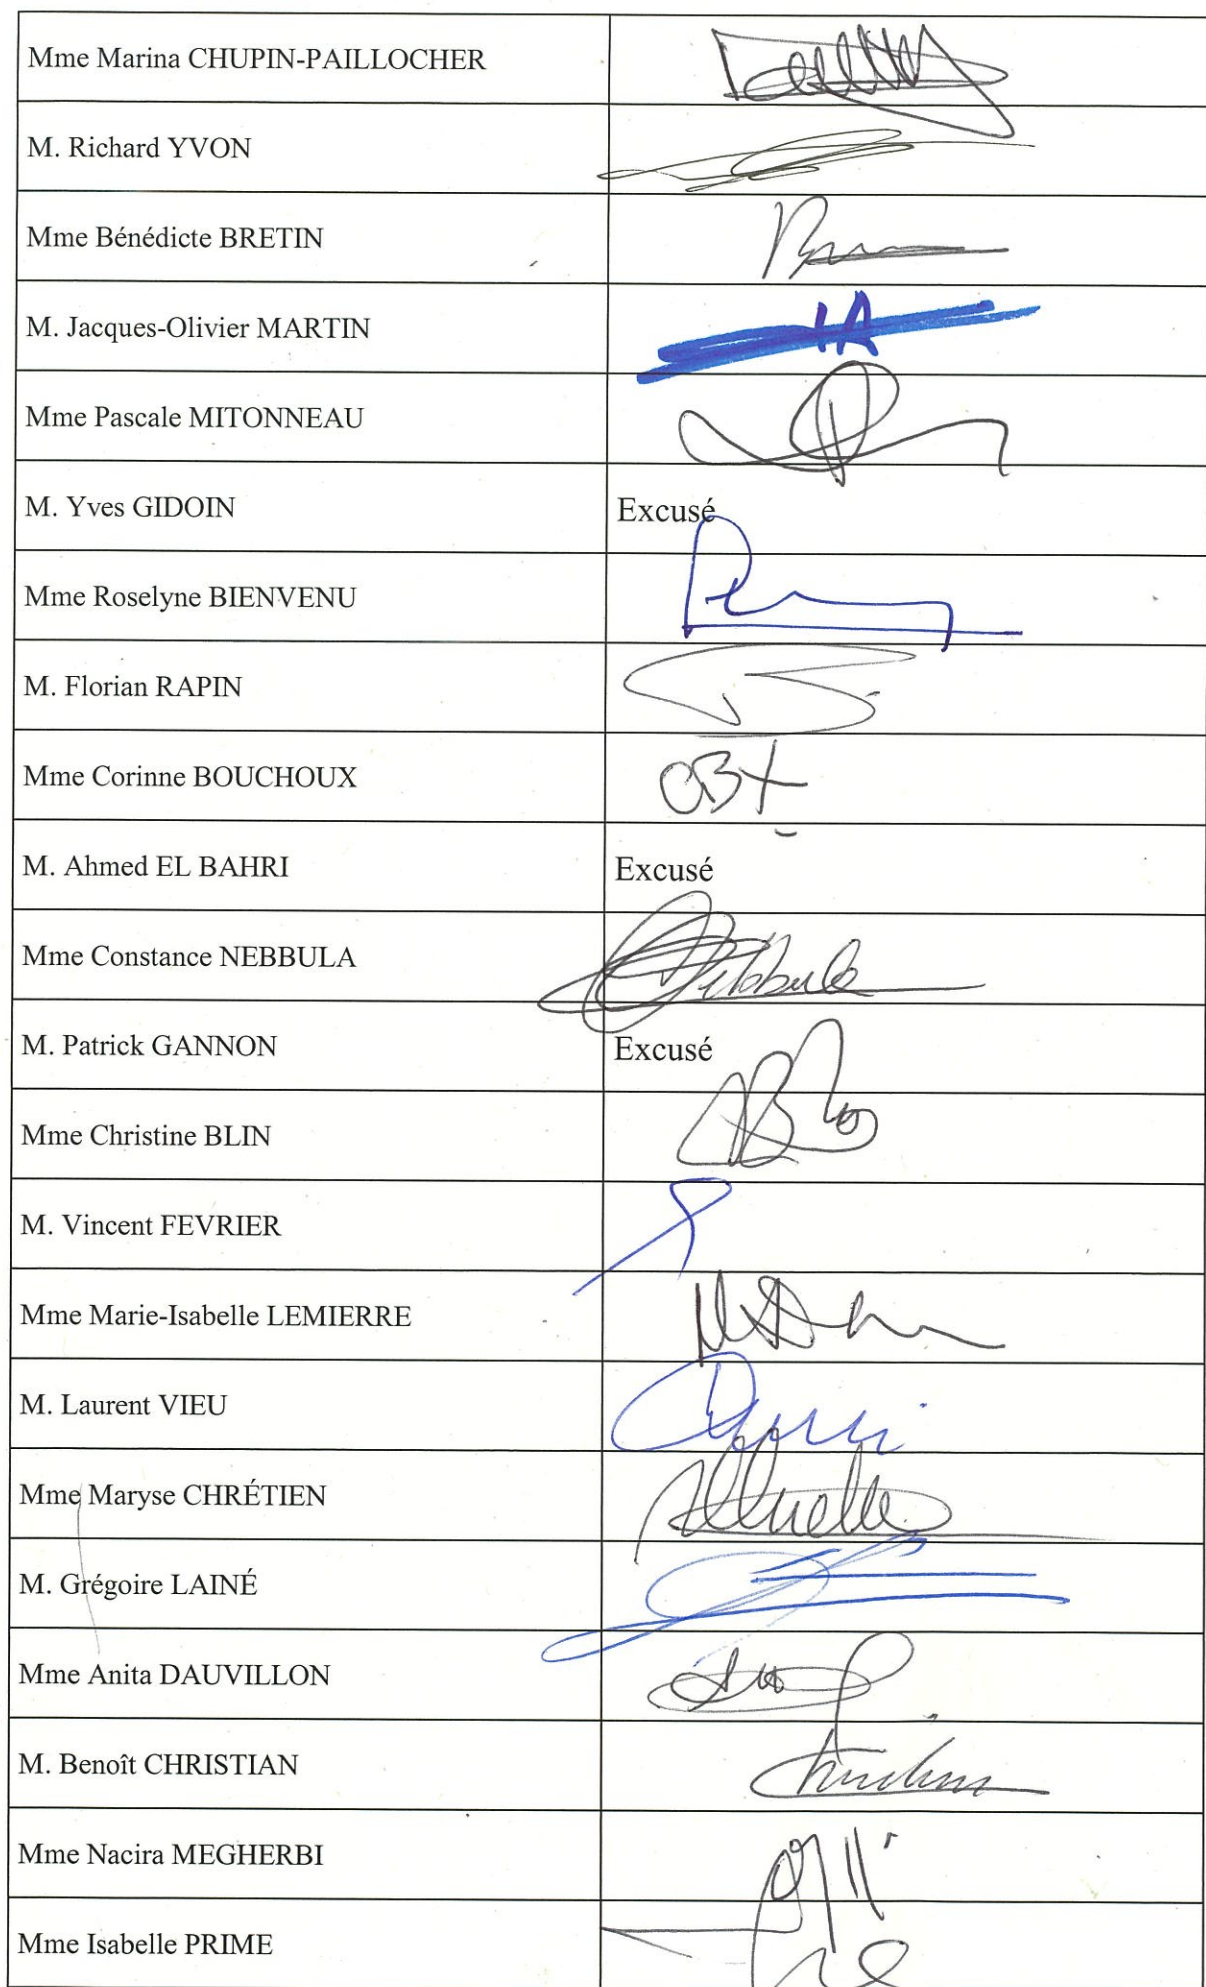 Mme Marina CHUPIN-PAILLOCHER
M. Richard YVON
Mme Bénédicte BRETIN
M. Jacques-Olivier MARTIN
Mme Pascale MITONNEAU
M. Yves GIDOIN Excusé
Mme Roselyne BIENVENU
M. Florian RAPIN
Mme Corinne BOUCHOUX
M. Ahmed EL BAHRI Excusé
Mme Constance NEBBULA
M. Patrick GANNON Excusé
Mme Christine BLIN
M. Vincent FEVRIER
Mme Marie-Isabelle LEMIERRE
M. Laurent VIEU
Mme Maryse CHRÉTIEN
M. Grégoire LAINÉ
Mme Anita DAUVILLON
M. Benoît CHRISTIAN
Mme Nacira MEGHERBI
Mme Isabelle PRIME